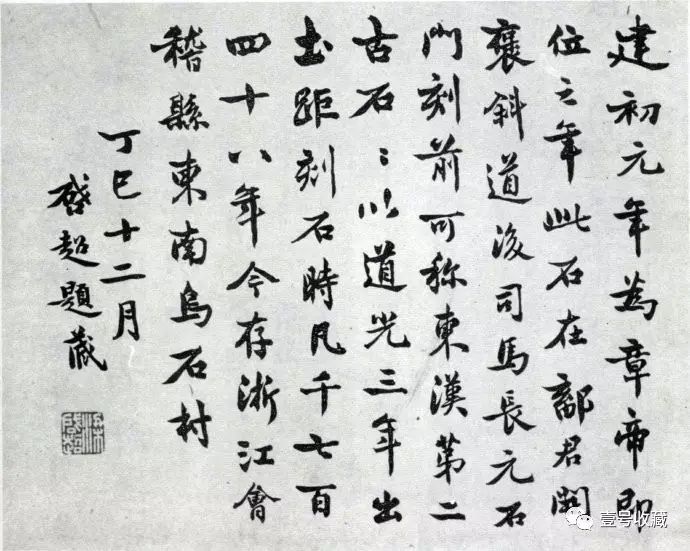 建初元年為章帝即
位之年此石在鄐君開
褒斜道後司馬長元石
門刻前可称東漢第二
古石〻以道光三年出
土距刻石時凡千七百
四十八年今存浙江會
稽縣東南烏石村
丁巳十二月
啓超題藏
壹号收藏